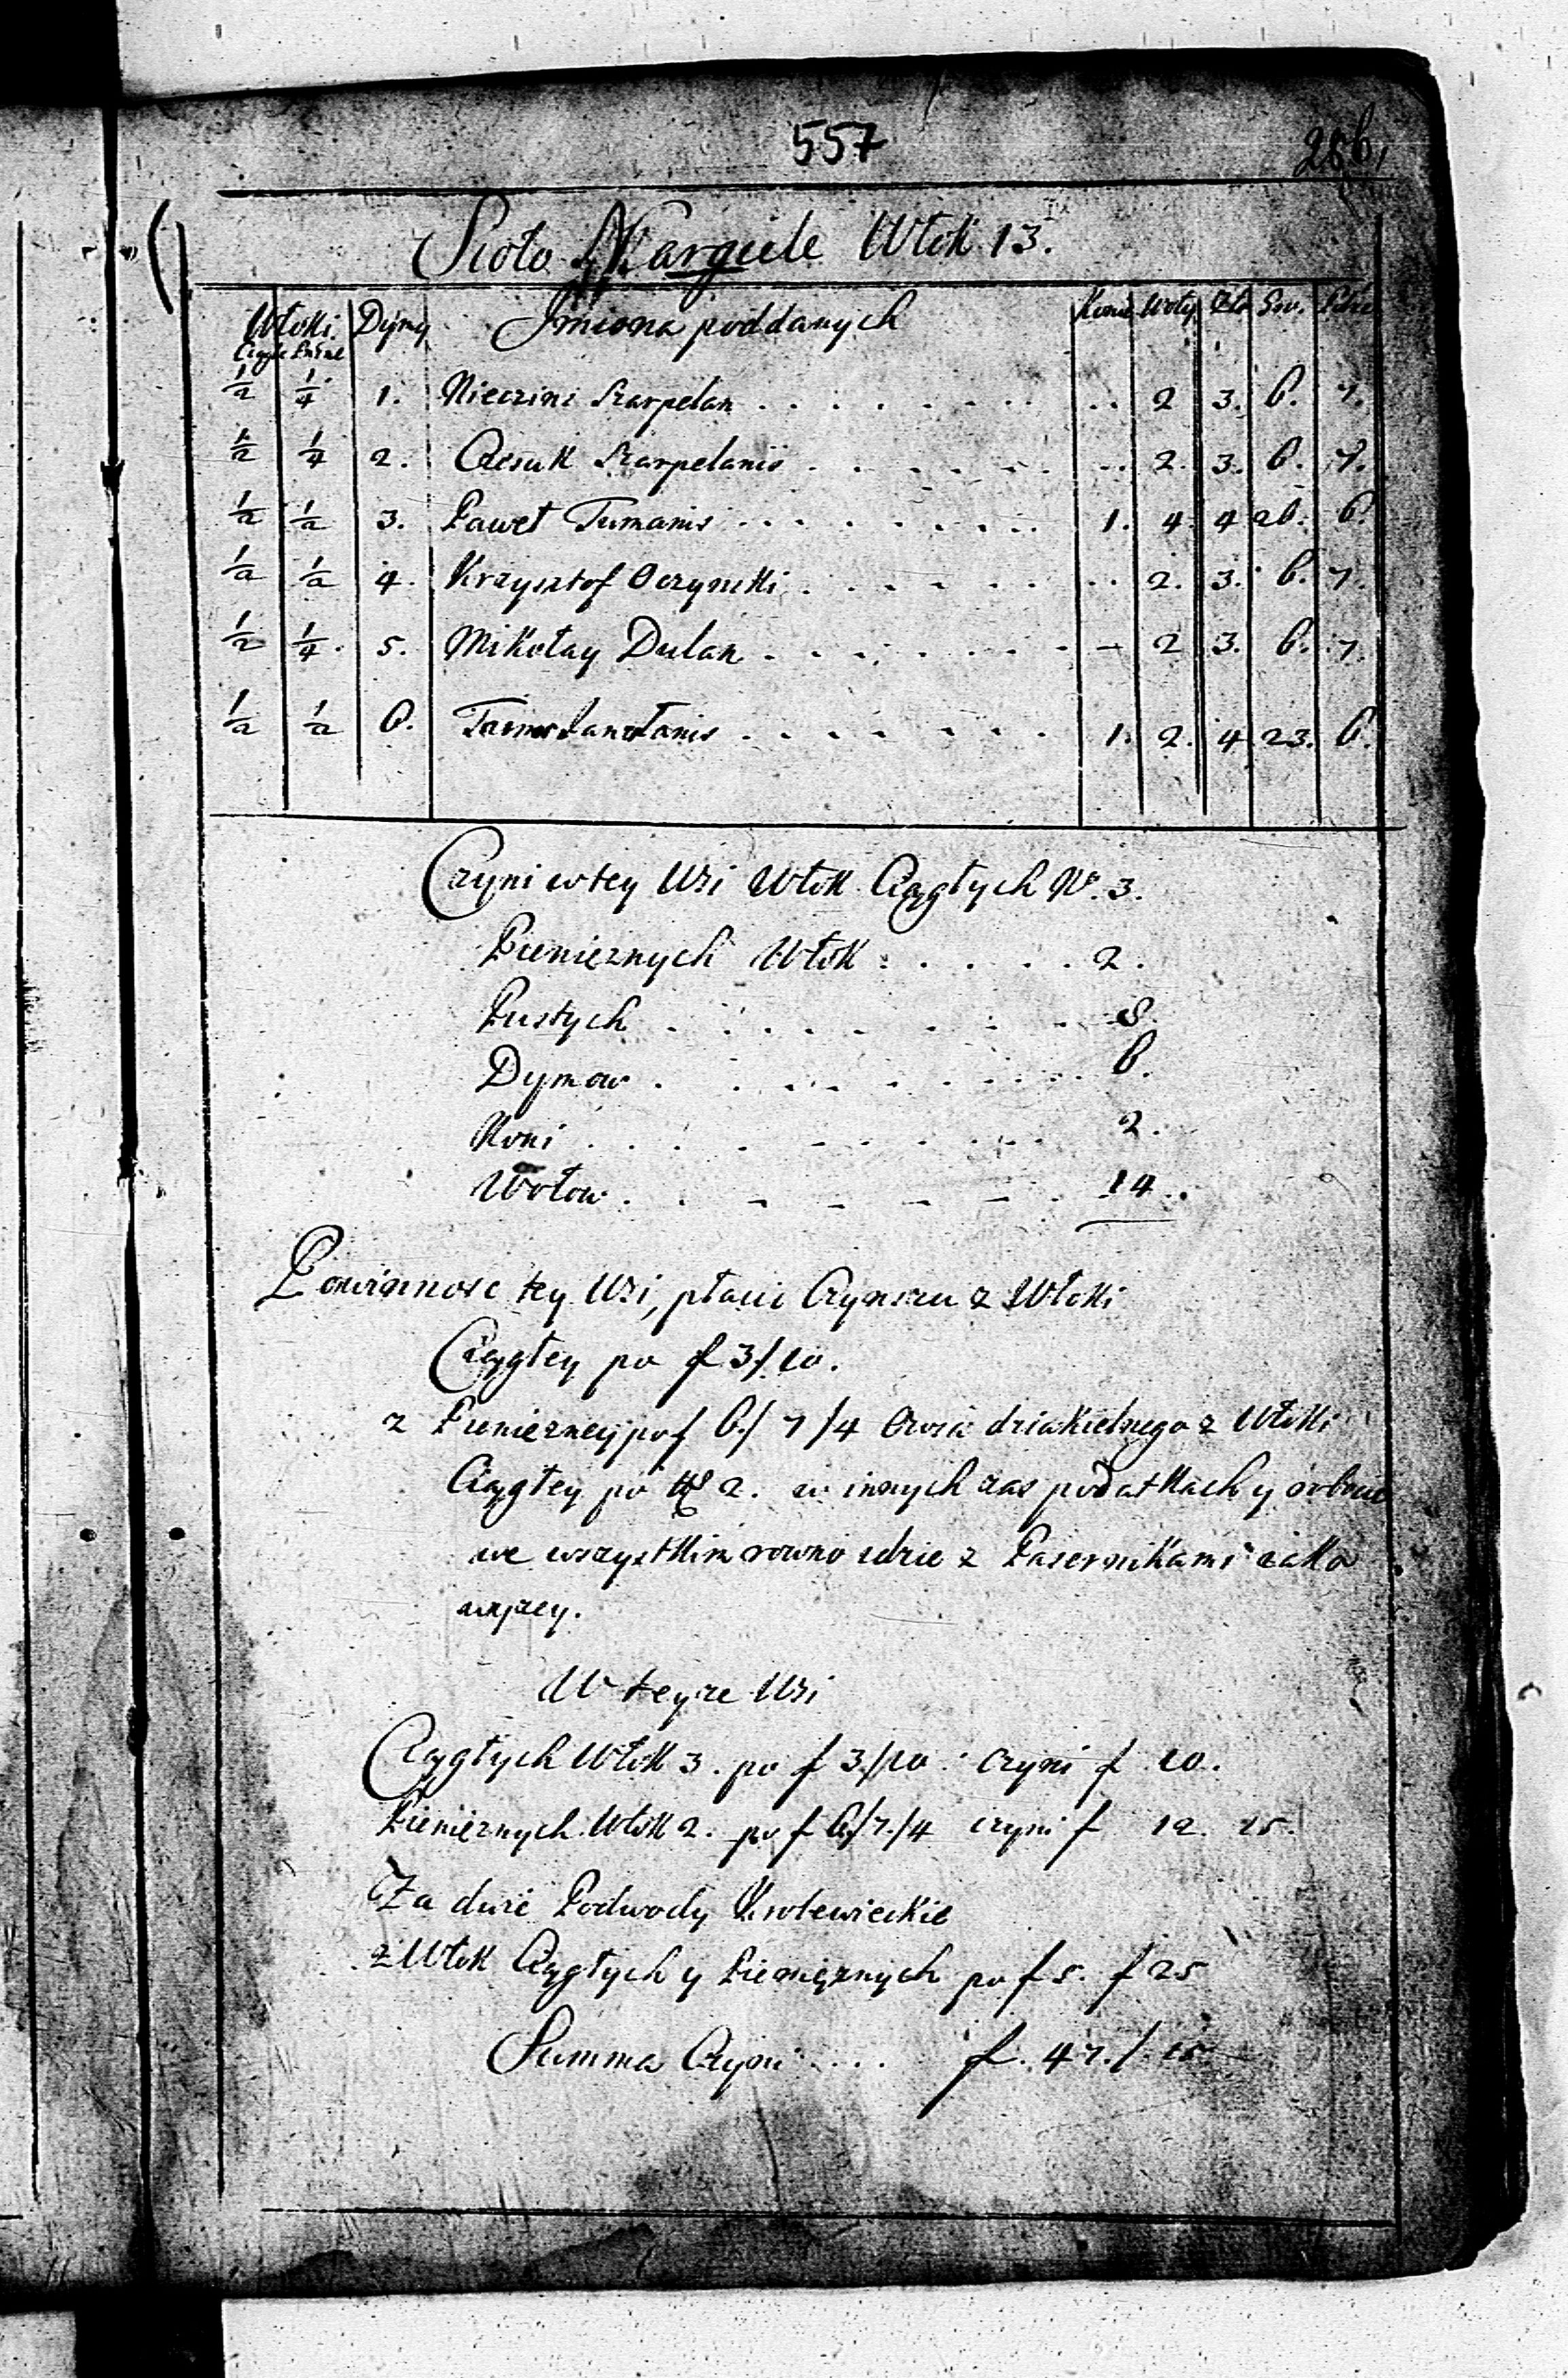 557
286
Sioło Nargiele Włok 13.
Włoki Dymy Imiona poddanych Konie Woły
½ ¼ 1. Nieczini Szarpelan . . . . . . . . . . 2 3. 6. 7.
½ ¼ 2. Czesuk Szarpelanis . . . . . . . . 2. 3. 6. 7.
½ ½ 3. Paweł Tumanis . . . . . . . . 1. 4. 4 26. 6.
½ ½ 4. Krzysztof . . . . . . . . 2. 3. 6. 7.
½ ¼. 5. Mikołay Dulan . . . . . . . - 2 3. 6. 7.
½ ½ 6. . . . . . . . 1. 2. 4 23. 6.
Czyni w tey Wsi Włok Ciągłych No. 3.
Pieniężnych Włok . . . . . 2.
Pustych . . . . . . . . 8.
Dymow . . . . . . . . 6.
Koni . . . . . . . . 2.
Wołow . . . . . . . 14.
Powinnosc tey Wsi, płacic Czynszu z Włoki
Ciągłey po f 3/10.
z Pienięzney po f 6/7/4 Owsa dziakielnego z Włoki
Ciągłey po 2. w innych zas podatkach y
we wszystkim rowno idzie z Pasernikami iako
wyzey.
W teyze Wsi
Ciągłych Włok 3. po f 3/10 czyni f 10.
Pieniężnych Włok 2. po f 6/7/4 czyni f 12. 15.
Za dwie Podwody Krolewieckie
z Włok Ciągłych y Pieniężnych po f 5. f 25
Summa Czyni . . . f. 47./15